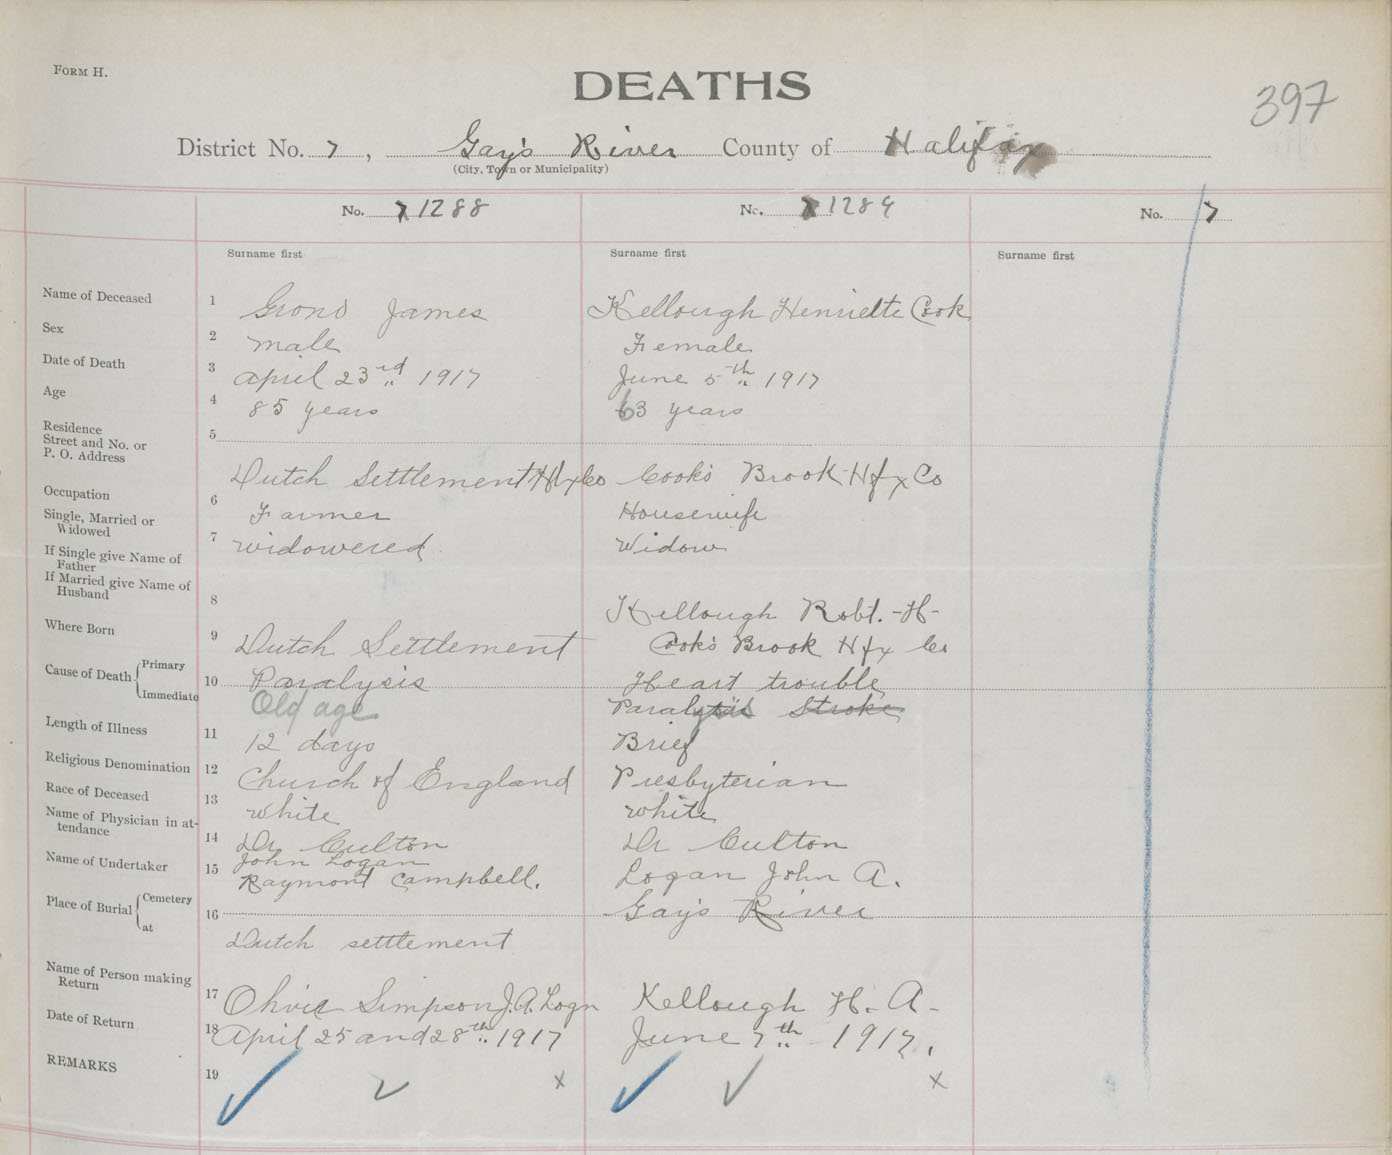 FORM H.
DEATHS
397
District No. 7, Gay's River County of Halifax
(City, Town or Municipality)
No. 7 1288 No. 7 1289 No. 7
Surname first Surname first Surname first
Name of Deceased 1 Grono James Kellough Henriette Cook
Sex 2 male Female
Date of Death 3 April 23rd 1917 June 5th 1917
Age 4 85 years 63 years
Residence
Street and No. or
P. O. Address
5 Dutch Settlement Hfx Co Cook's Brook Hfx Co
Occupation 6 Farmer Housewife
Single, Married or
Widowed
7 widowered Widow
If Single give Name of
Father
If Married give Name of
Husband
8 Kellough Robt. -H-
Where Born 9 Dutch Settlement Cook's Brook Hfx Co
Cause of Death { Primary 10 Paralysis Heart trouble
Immediate Old age Stroke
Length of Illness 11 12 days Brief
Religious Denomination 12 Church of England Presbyterian
Race of Deceased 13 white white
Name of Physician in at-
tendance
14 Dr Culton Dr Culton
John Logan
Name of Undertaker 15 Raymont Campbell. Logan John A.
Place of Burial { Cemetery 16 Gay's River
at Dutch settlement
Name of Person making
Return
17 Simpson J.A. Logn Kellough H. A-
Date of Return 18 April 25 and 28th 1917 June 7th 1917.
REMARKS 19 x x